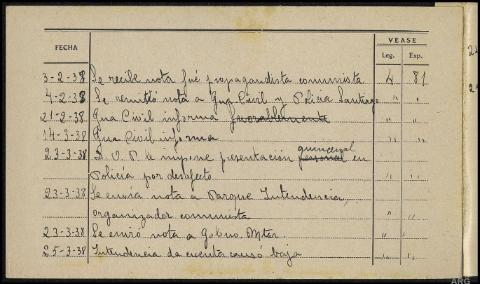 FECHA
VEASE
Leg. Exp.
3-2-38 Se recibe nota fué propagandista comunista 4 81
4-2-38 Se remitió nota a Gua Civil y Policia Santiago " "
21-2-38 Gua Civil informa favorablemente " "
14-3-38 Gua Civil informa " "
quincenal
23-3-38 D. U. P. le impone presentación personal en
Policía por desafecto " "
23-3-38 Se envía nota a Parque Intendencia
organizador comunista " "
23-3-38 Se envió nota a Gobno. Mtar. " "
25-3-38 Intendencia da cuenta causó baja " "
ARG